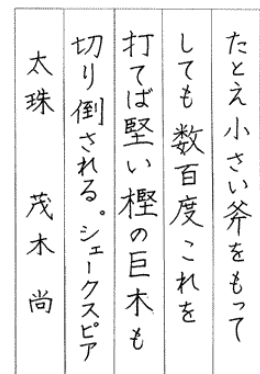 たとえ小さい斧をもって
しても数百度これを
打てば堅い樫の巨木も
切り倒される。シェークスピア
太珠 茂木 尚